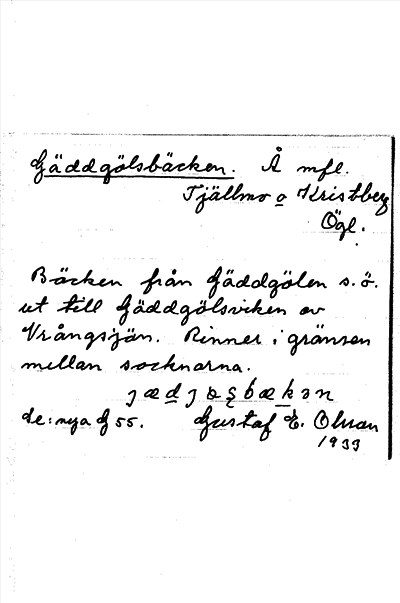 Gäddgölsbäcken. Å mfl.
Tjällmo o Kristberg
Ögl.
Bäcken från Gäddgölen s.ö.
ut till Gäddgölsviken av
Vrångsjön. Rinner i gränsen
mellan socknarna.
Se: nya G 55. Gustaf E. Olsson
1933